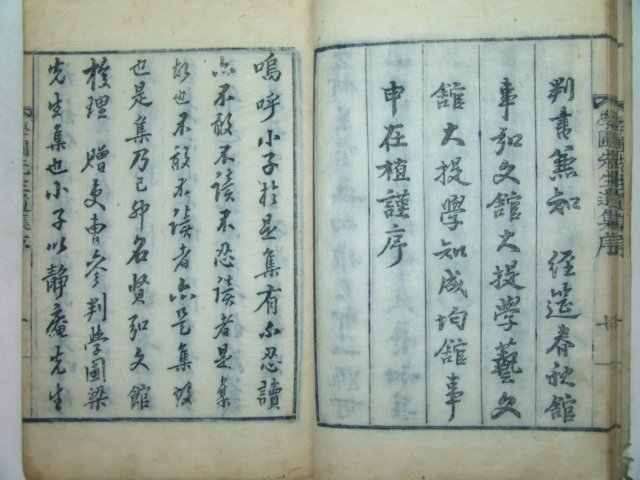 判書兼知 經筵春秋館
事弘文館大提學藝文
館大提學知成均館事
申在植謹序
嗚呼小子於是集有不忍讀
亦不敢不讀不忍讀者是集
故也不敢不讀者亦是集故
也是集乃己卯名賢弘文館
校理 贈吏曹參判學圃梁
先生集也小子以靜庵先生
學圃先生遺集序